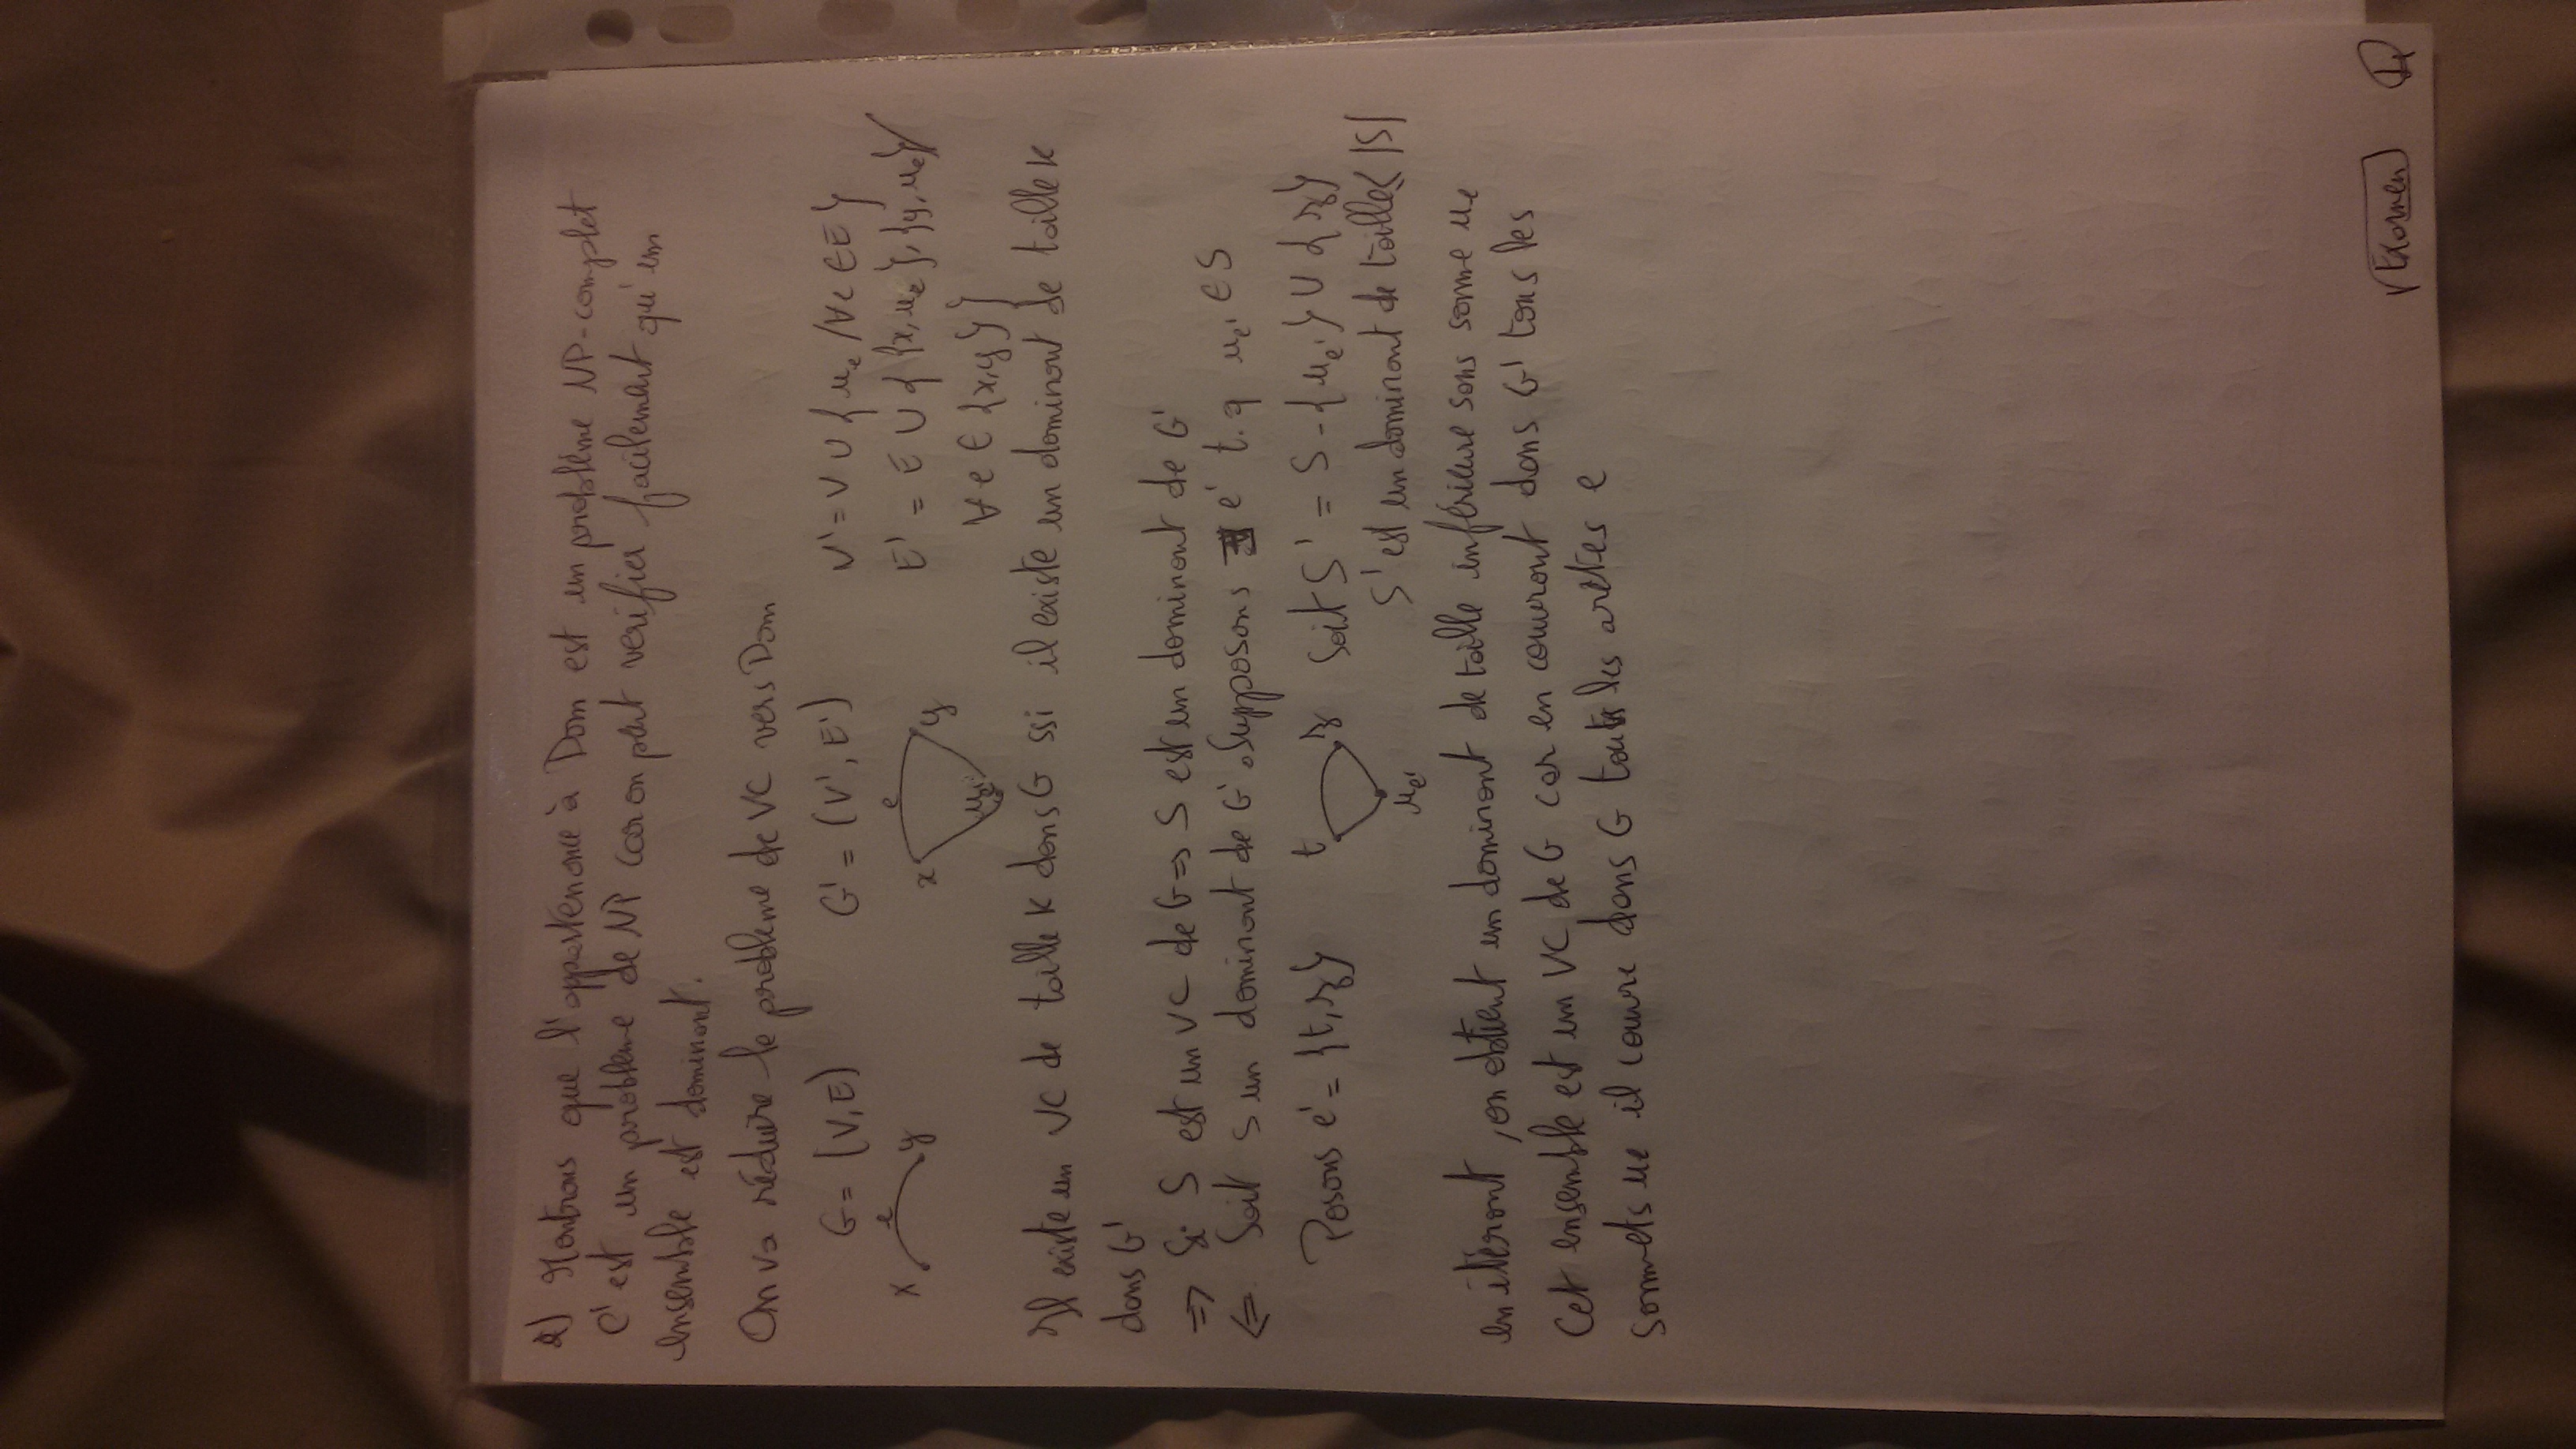 2) Montrons que l'appartenance à Dom est un problème NP-complet
C'est un probleme de NP car on peut verifier facilement qu'un
ensemble est dominant.
On va réduire le probleme de VC vers Dom
G = (V,E) G' = (V', E') V' = V ∪ { u_e / ∀e ∈ E }
x e y x e y u_e E' = E ∪ { {x, u_e}, {y, u_e} /
∀ e ∈ {x,y} }
Il existe un VC de taille K dans G ssi il existe un dominant de taille K
dans G'
⇒ Si S est un VC de G ⇒ S est un dominant de G'
⇐ Soit S un dominant de G'. Supposons ∃ e' t.q u_e' ∈ S
Posons e' = {t, z} t z u_e' Soit S' = S - { u_e' } ∪ { z }
S' est un dominant de taille ≤ |S|
en itérant, on obtient un dominant de taille inférieure sans somme u_e
Cet ensemble est un VC de G car en couvrant dans G' tous les
sommets u_e il couvre dans G toutes les arêtes e
Examen